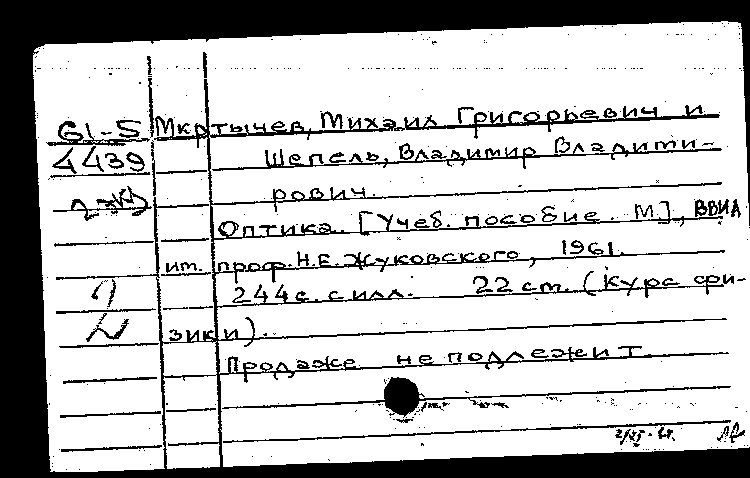 61-5 Мкртычев, Михаил Григорьевич и
4439 Шепель, Владимир Владими-
рович.
Оптика. [Учеб. пособие. М.], ВВИА
им. проф. Н.Е. Жуковского, 1961.
2 244 с. с илл. 22 см. (Курс фи-
зики).
Продаже не подлежит